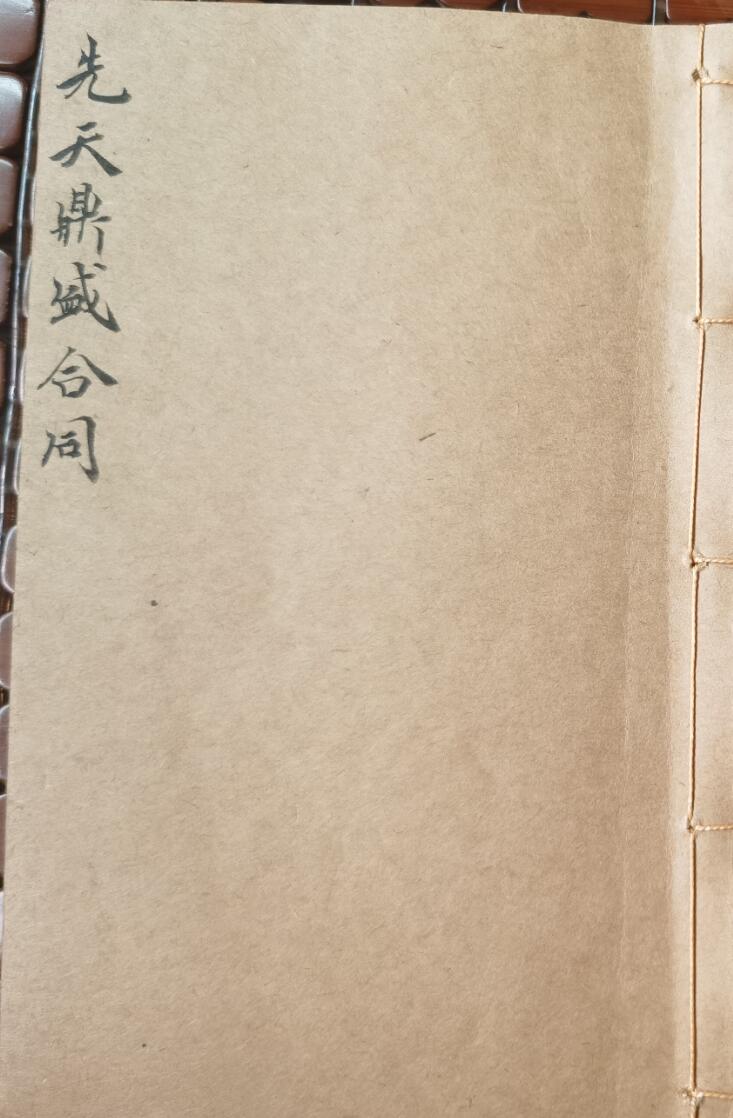 先天鼎盛合同